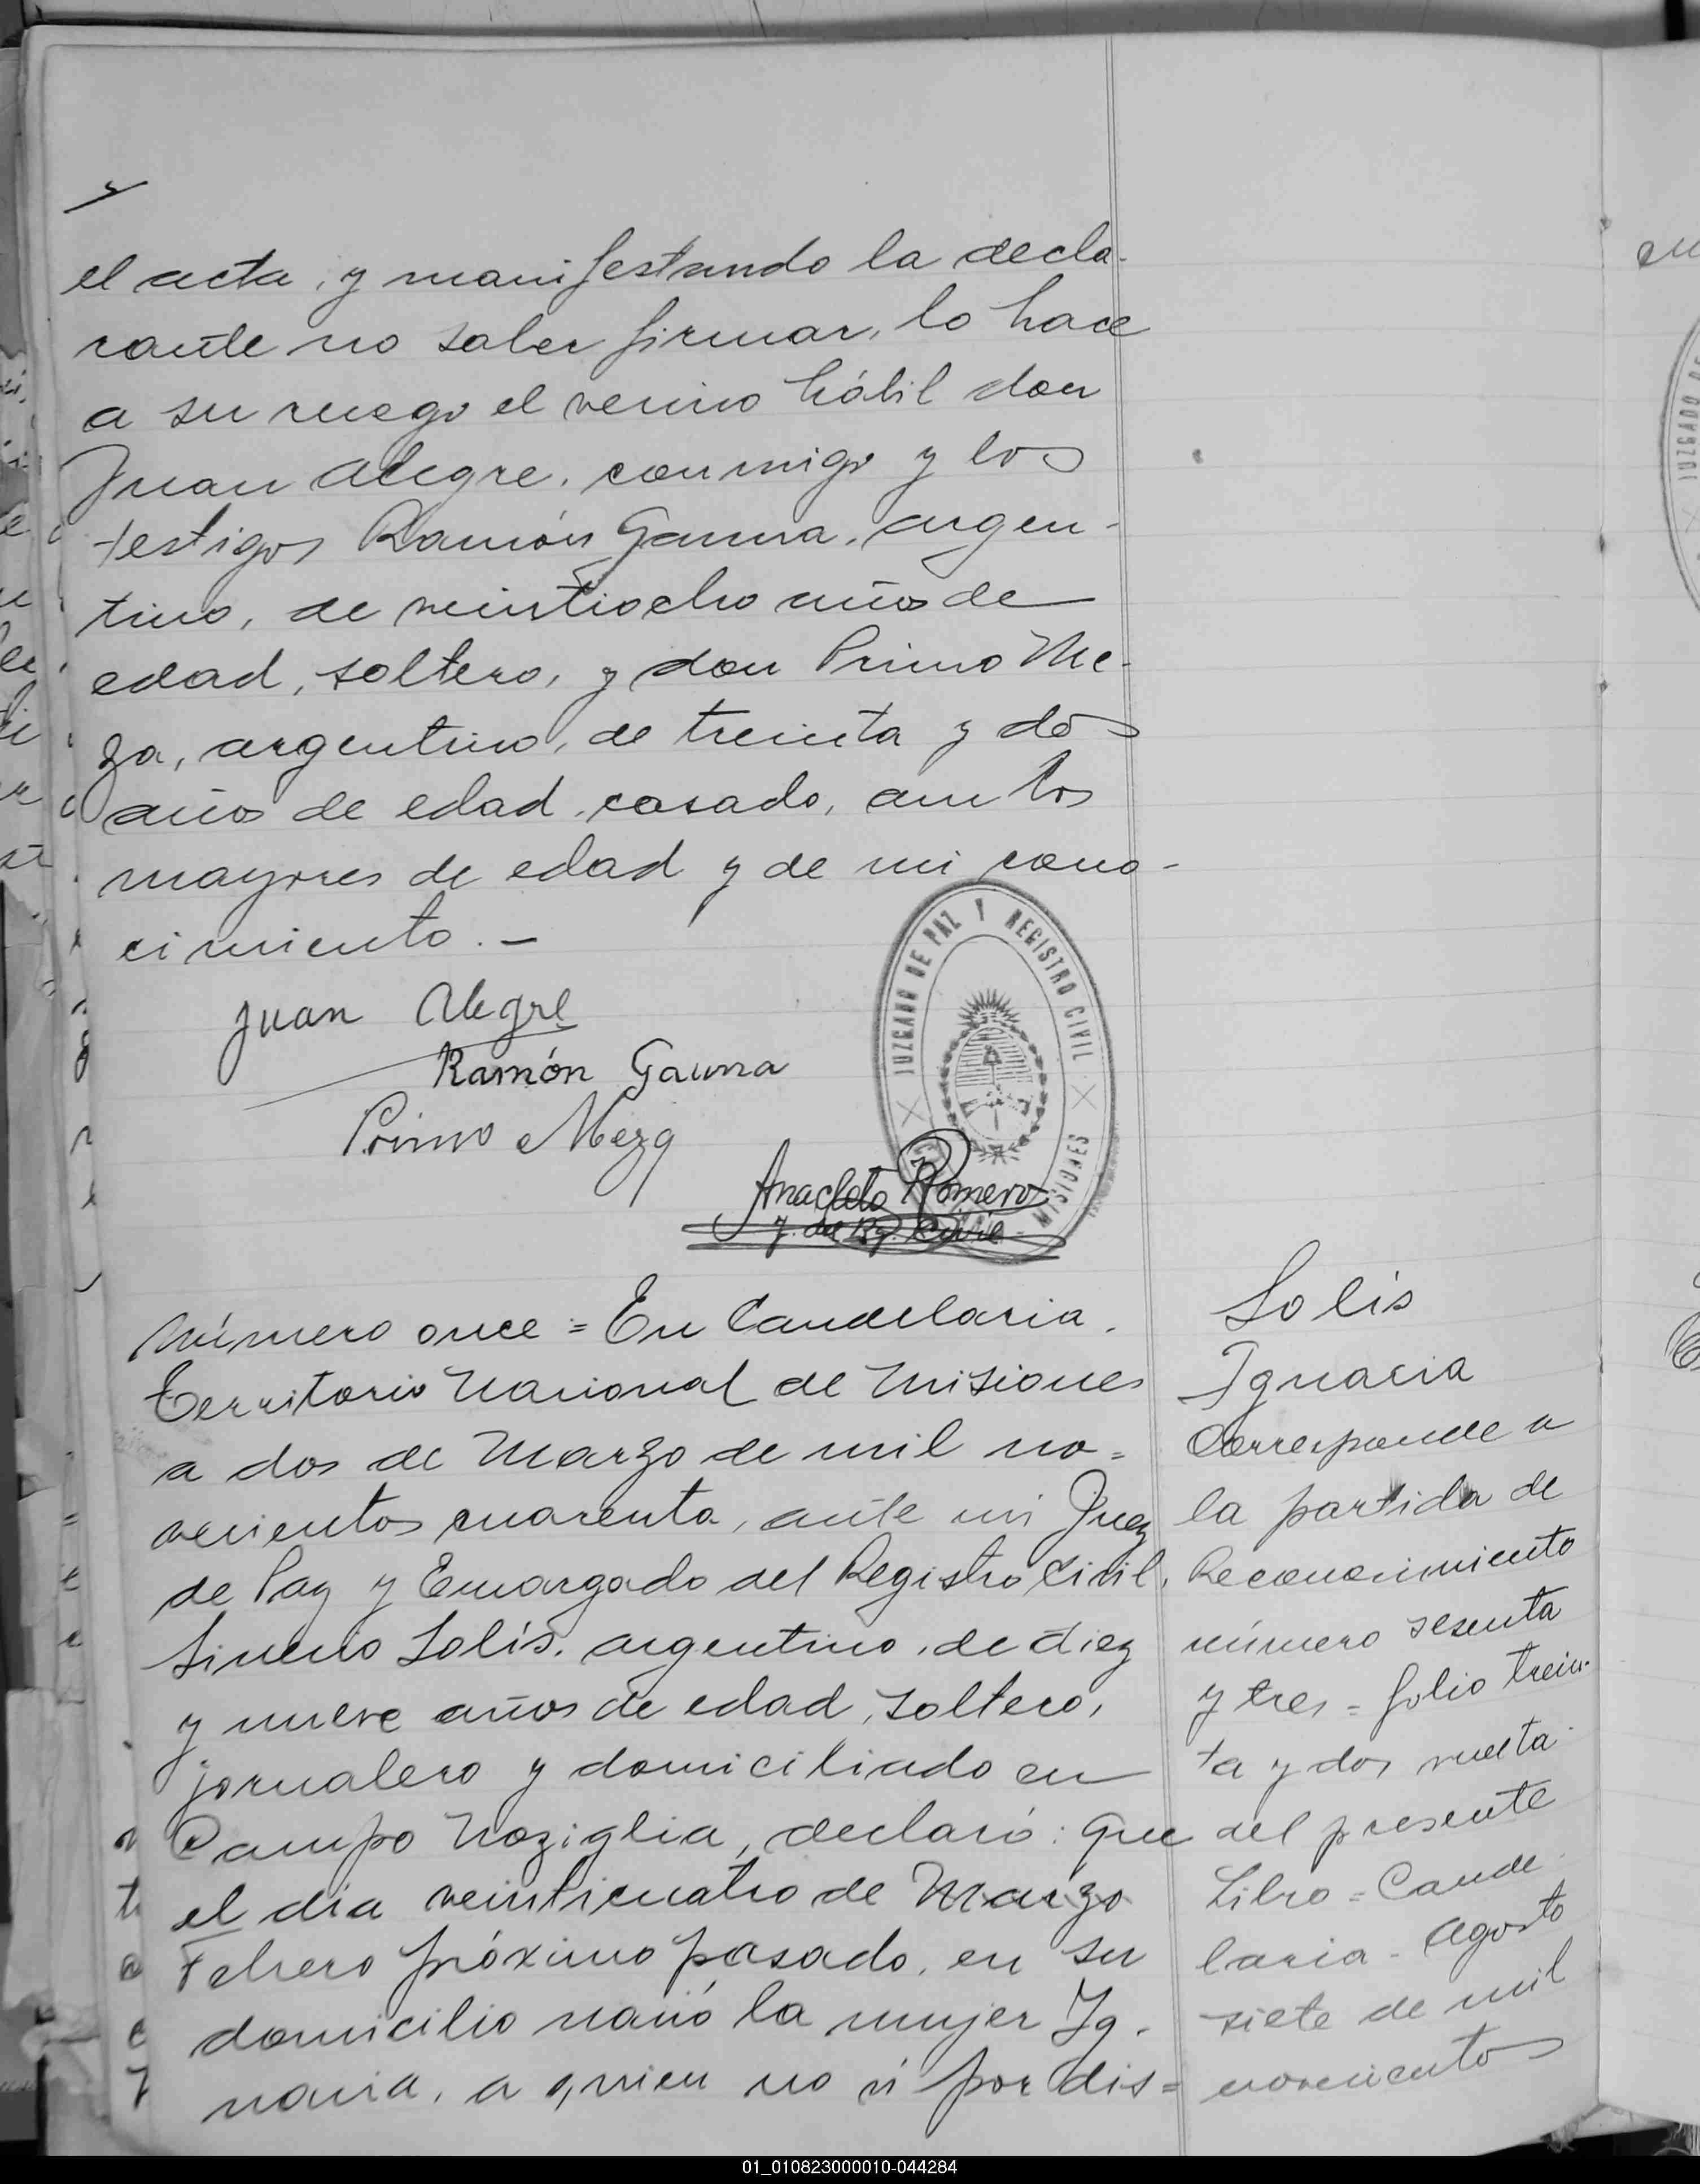 el acta, y manifestando la decla-
rante no saber firmar, lo hace
a su ruego el vecino hábil don
Juan Alegre, conmigo y los
testigos Ramón Gauna, argen-
tino, de veintiocho años de
edad, soltero, y don Primo Me-
za, argentino, de treinta y dos
años de edad, casado, ambos
mayores de edad y de mi cono-
cimiento.-
Juan Alegre
Ramón Gauna
Primo Meza
JUZGADO DE PAZ Y REGISTRO CIVIL
MISIONES
Anacleto Romero
J. del Rg. Civil
Número once = En Candelaria,
Territorio Nacional de Misiones
a dos de Marzo de mil no=
vecientos cuarenta, ante mi Juez
de Paz y Encargado del Registro Civil,
Solís, argentino, de diez
y nueve años de edad, soltero,
jornalero y domiciliado en
Campo Noziglia, declaró: Que
el día veinticuatro de Marzo
Febrero próximo pasado, en su
domicilio nació la mujer Ig-
nacia, a quien no ví por dis=
Solís
Ignacia
Corresponde a
la partida de
Reconocimiento
número sesenta
y tres = folio trein-
ta y dos vuelta
del presente
Libro = Cande
laria - Agosto
siete de mil
novecientos
JUZGADO DE
01_010823000010-044284